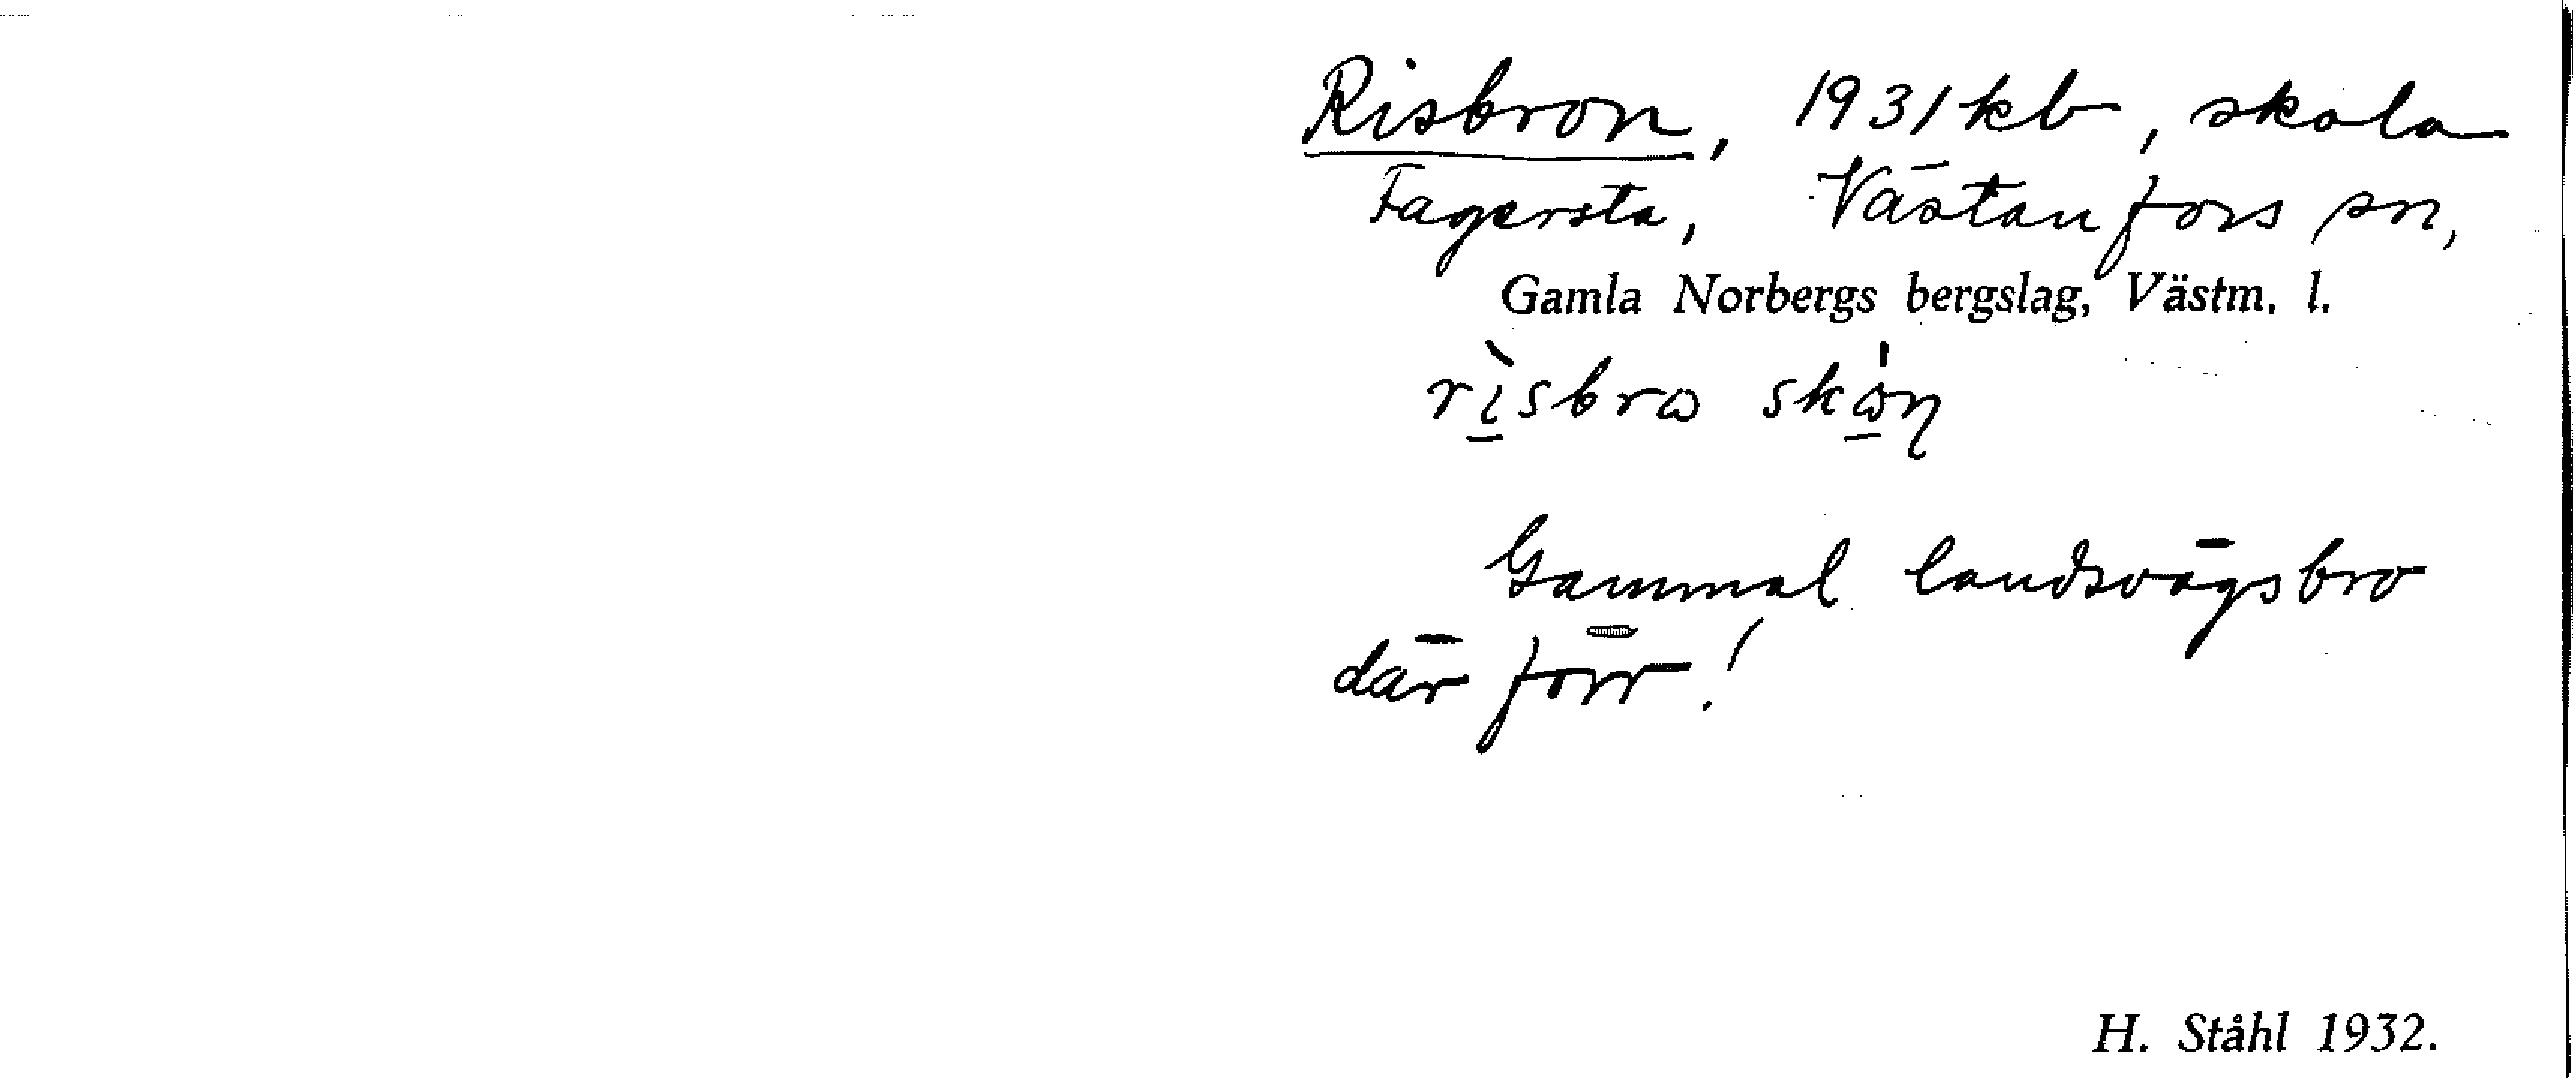 Risbron, 1931 kb, skola
Fagersta, Västanfors sn,
Gamla Norbergs bergslag, Västm. l.
rìsbrω skω̍n
Gammal landsvägsbro
där förr!
H. Ståhl 1932.